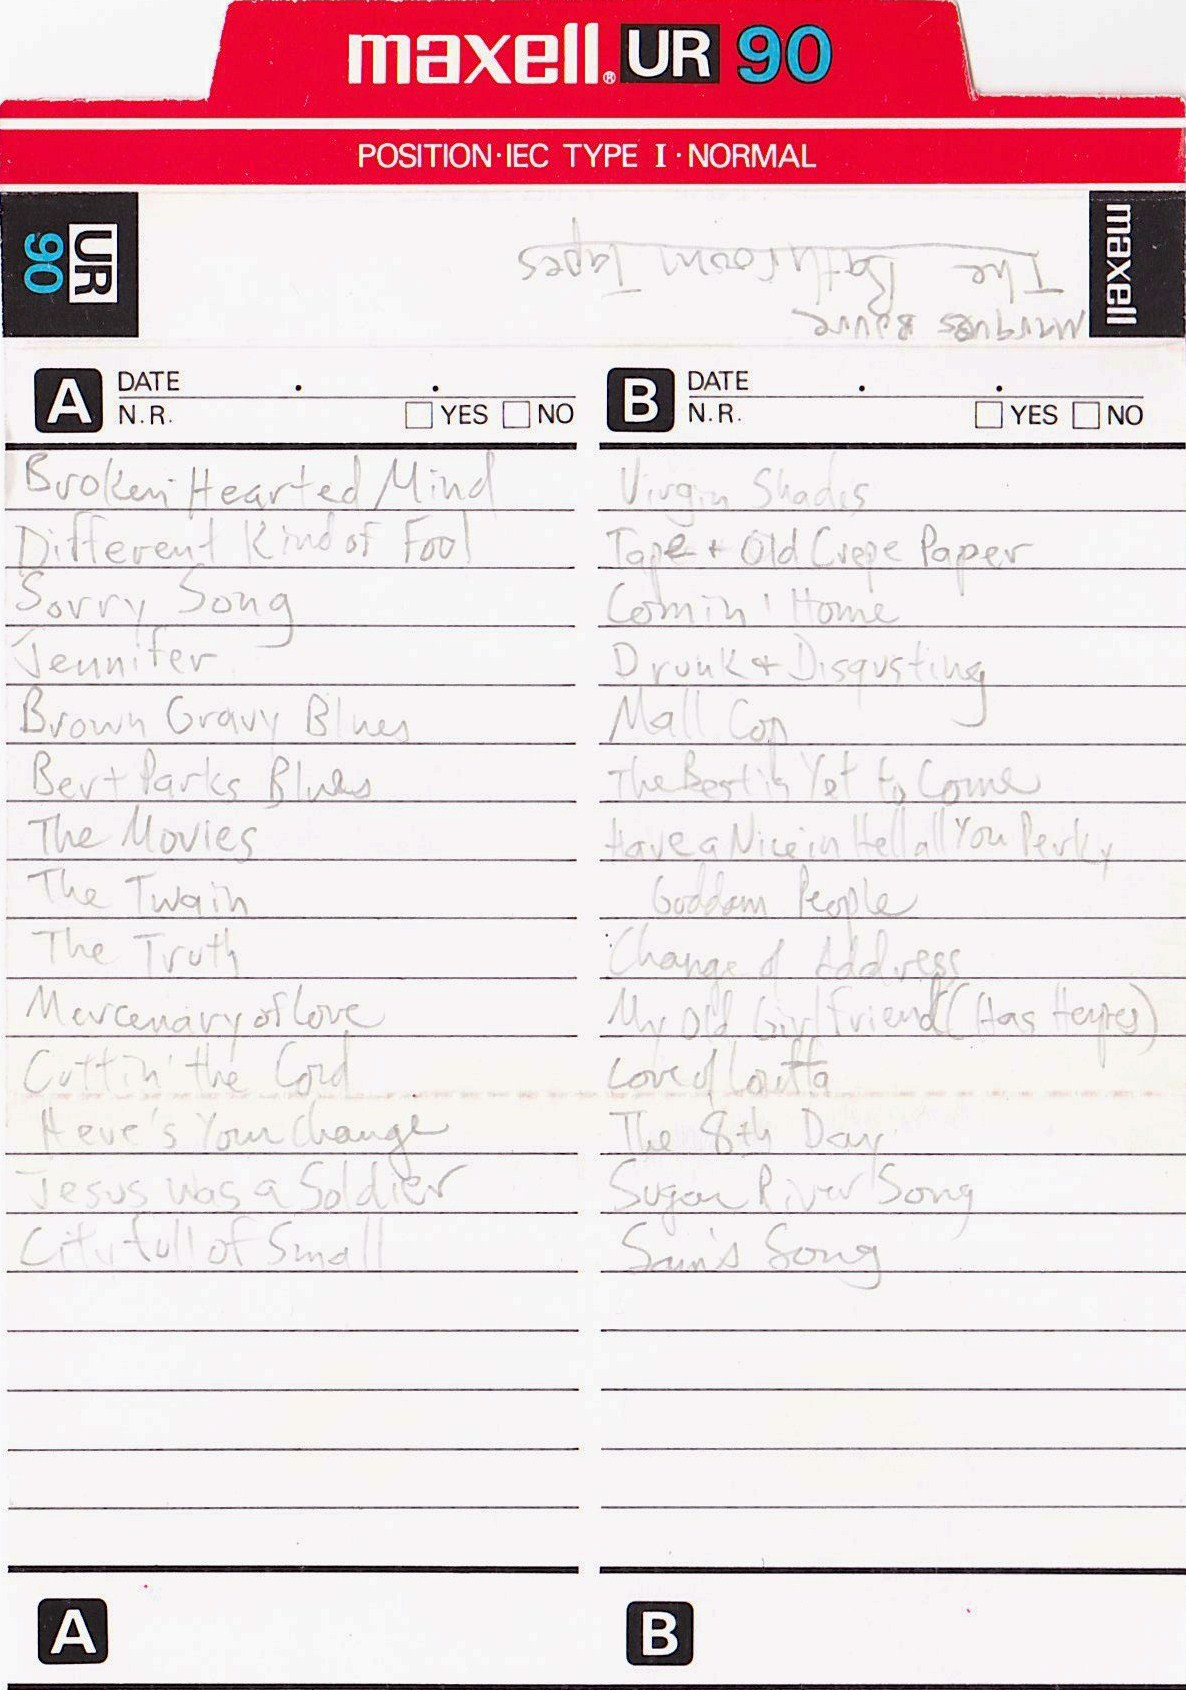 maxell® UR 90
POSITION·IEC TYPE I·NORMAL
UR 90
Marques Bovre
The Bathroom Tapes
maxell
A DATE . .
N.R. YES NO
Broken Hearted Mind
Different Kind of Fool
Sorry Song
Jennifer
Brown Gravy Blues
Bert Parks Blues
The Movies
The Twain
The Truth
Mercenary of Love
Cuttin' the Cord
Here's Your Change
Jesus was a Soldier
City full of Small
B DATE . .
N.R. YES NO
Virgin Shades
Tape + Old Crepe Paper
Comin' Home
Drunk + Disgusting
Mall Cop
The Best is Yet to Come
Have a Nice in Hell all You Perky
Goddam People
Change of Address
My Old Girlfriend (Has Herpes)
Love of Loretta
The 8th Day
Sugar River Song
Sam's Song
A
B